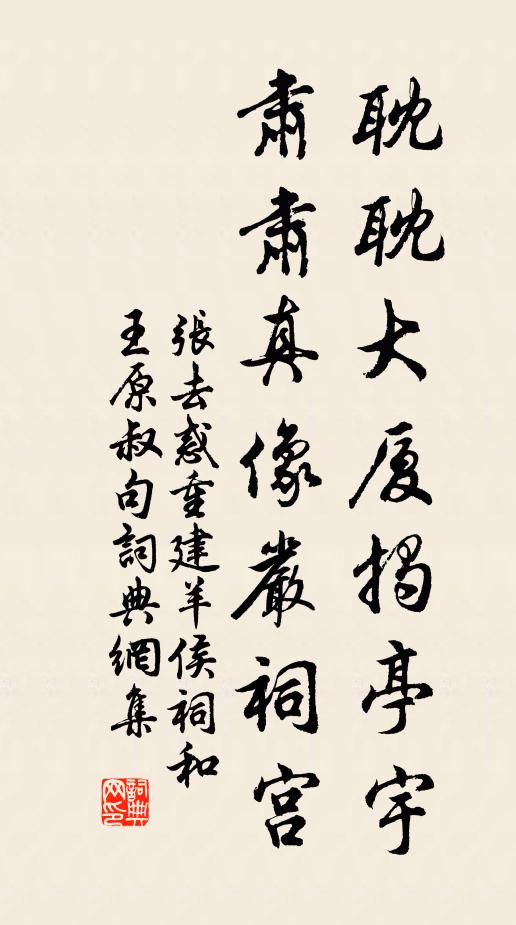 耽耽大厦揭亭宇
肅肅真像嚴祠宮
張去惑重建羊侯祠和
王原叔句詞典網集
詞典网印